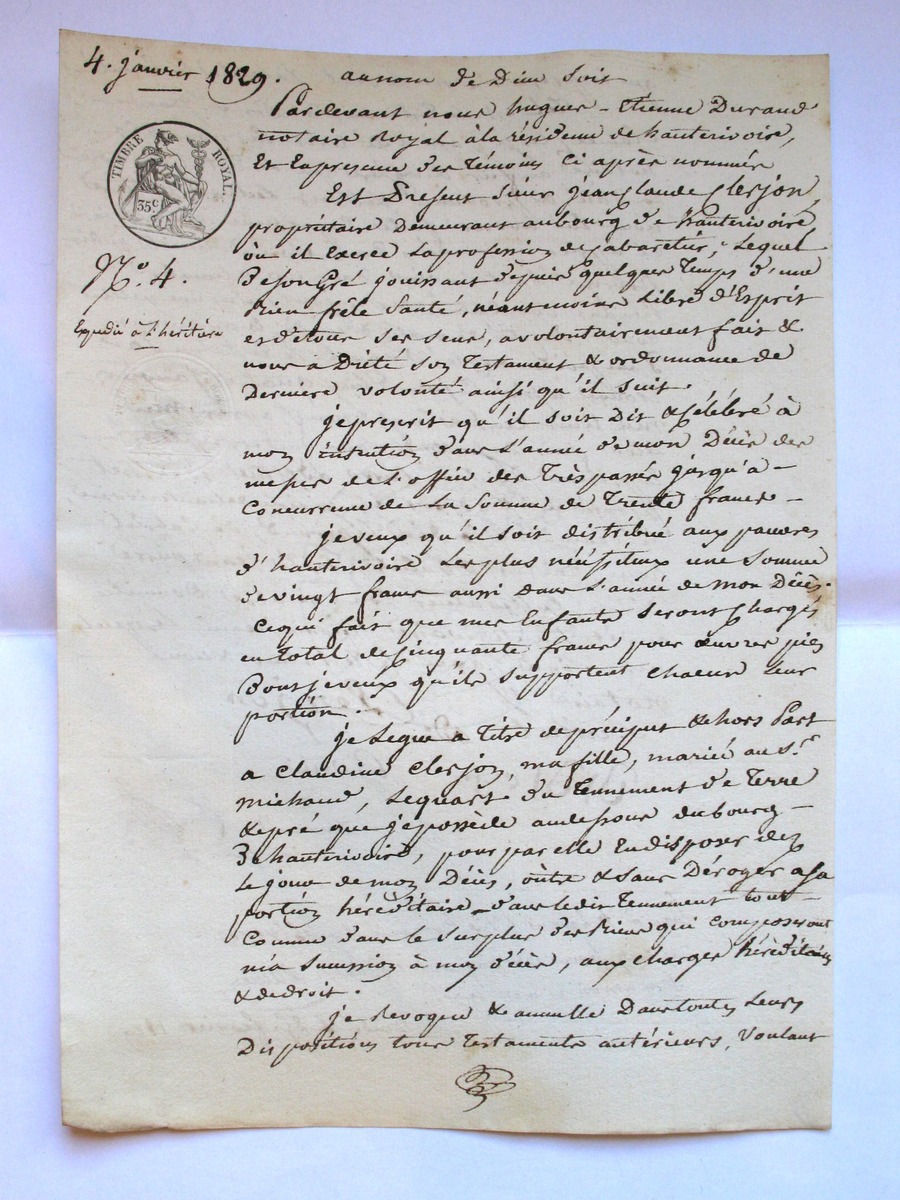 4. janvier 1829.
au nom de Dieu soit
TIMBRE ROYAL.
35c
Pardevant nous hugues-Etienne Durand
notaire Royal à la résidence de hauterivoire,
Et en presence des Témoins ci après nommés
Est Present sieur jean Claude Clerjon,
propriétaire Demeurant au bourg d'hauterivoire
où il exerce la profession de Cabaretier; Lequel
de son Gré jouissant depuis quelques Temps d'une
Bien frêle Santé, néantmoins Libre d'Esprit
et de tous ses sens, a volontairement fait &
nous a Dicté son Testament & ordonnance de
Derniere volonté ainsi qu'il suit.
N°. 4.
Expedié à l'héritière
je prescrit qu'il soit Dit & Célébré à
mon intention dans l'année de mon Décès des
messes de l'office des Trèspassés jusqu'à-
Concurrence de la Somme de Trente francs-
je veux qu'il soit distribué aux pauvres
d'hauterivoire Les plus nécessiteux une somme
de vingt francs aussi dans l'année de mon Décès.
Ce qui fait que mes Enfants seront Chargés
en total de Cinquante francs pour œuvres pies
Dont je veux qu'ils supportent chacun leur
portion.
je Legue a Titre de préciput & hors Part
a Claudine Clerjon, ma fille, mariée au sr.
michaud, le quart du Tennement de Terre
& pré que je possède au dessous du bourg-
d'hauterivoire, pour par elle En disposer dez
le jour de mon Décès, outre & sans Déroger a sa
portion héréditaire dans le dit Tennement tout-
Comme dans le surplus des Biens qui composeront
ma succession à mon décès, aux charges héréditaires
& de droit.
je Revoque & annulle Dans toutes leurs
Dispositions tous Testaments antérieurs, Voulant